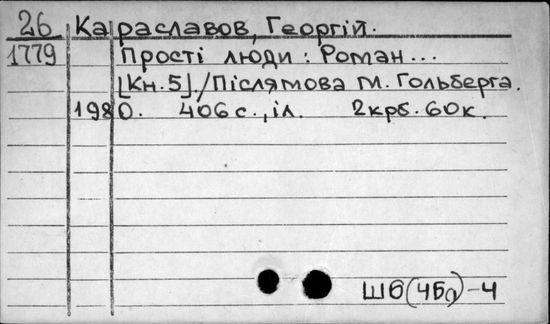 26 Караславов, Георгій.
1779 Прості люди: Роман...
[Кн.5]./Післямова М. Гольберга.
1980. 406 с., іл. 2крб. 60к.
Ш6(4Бл)-4